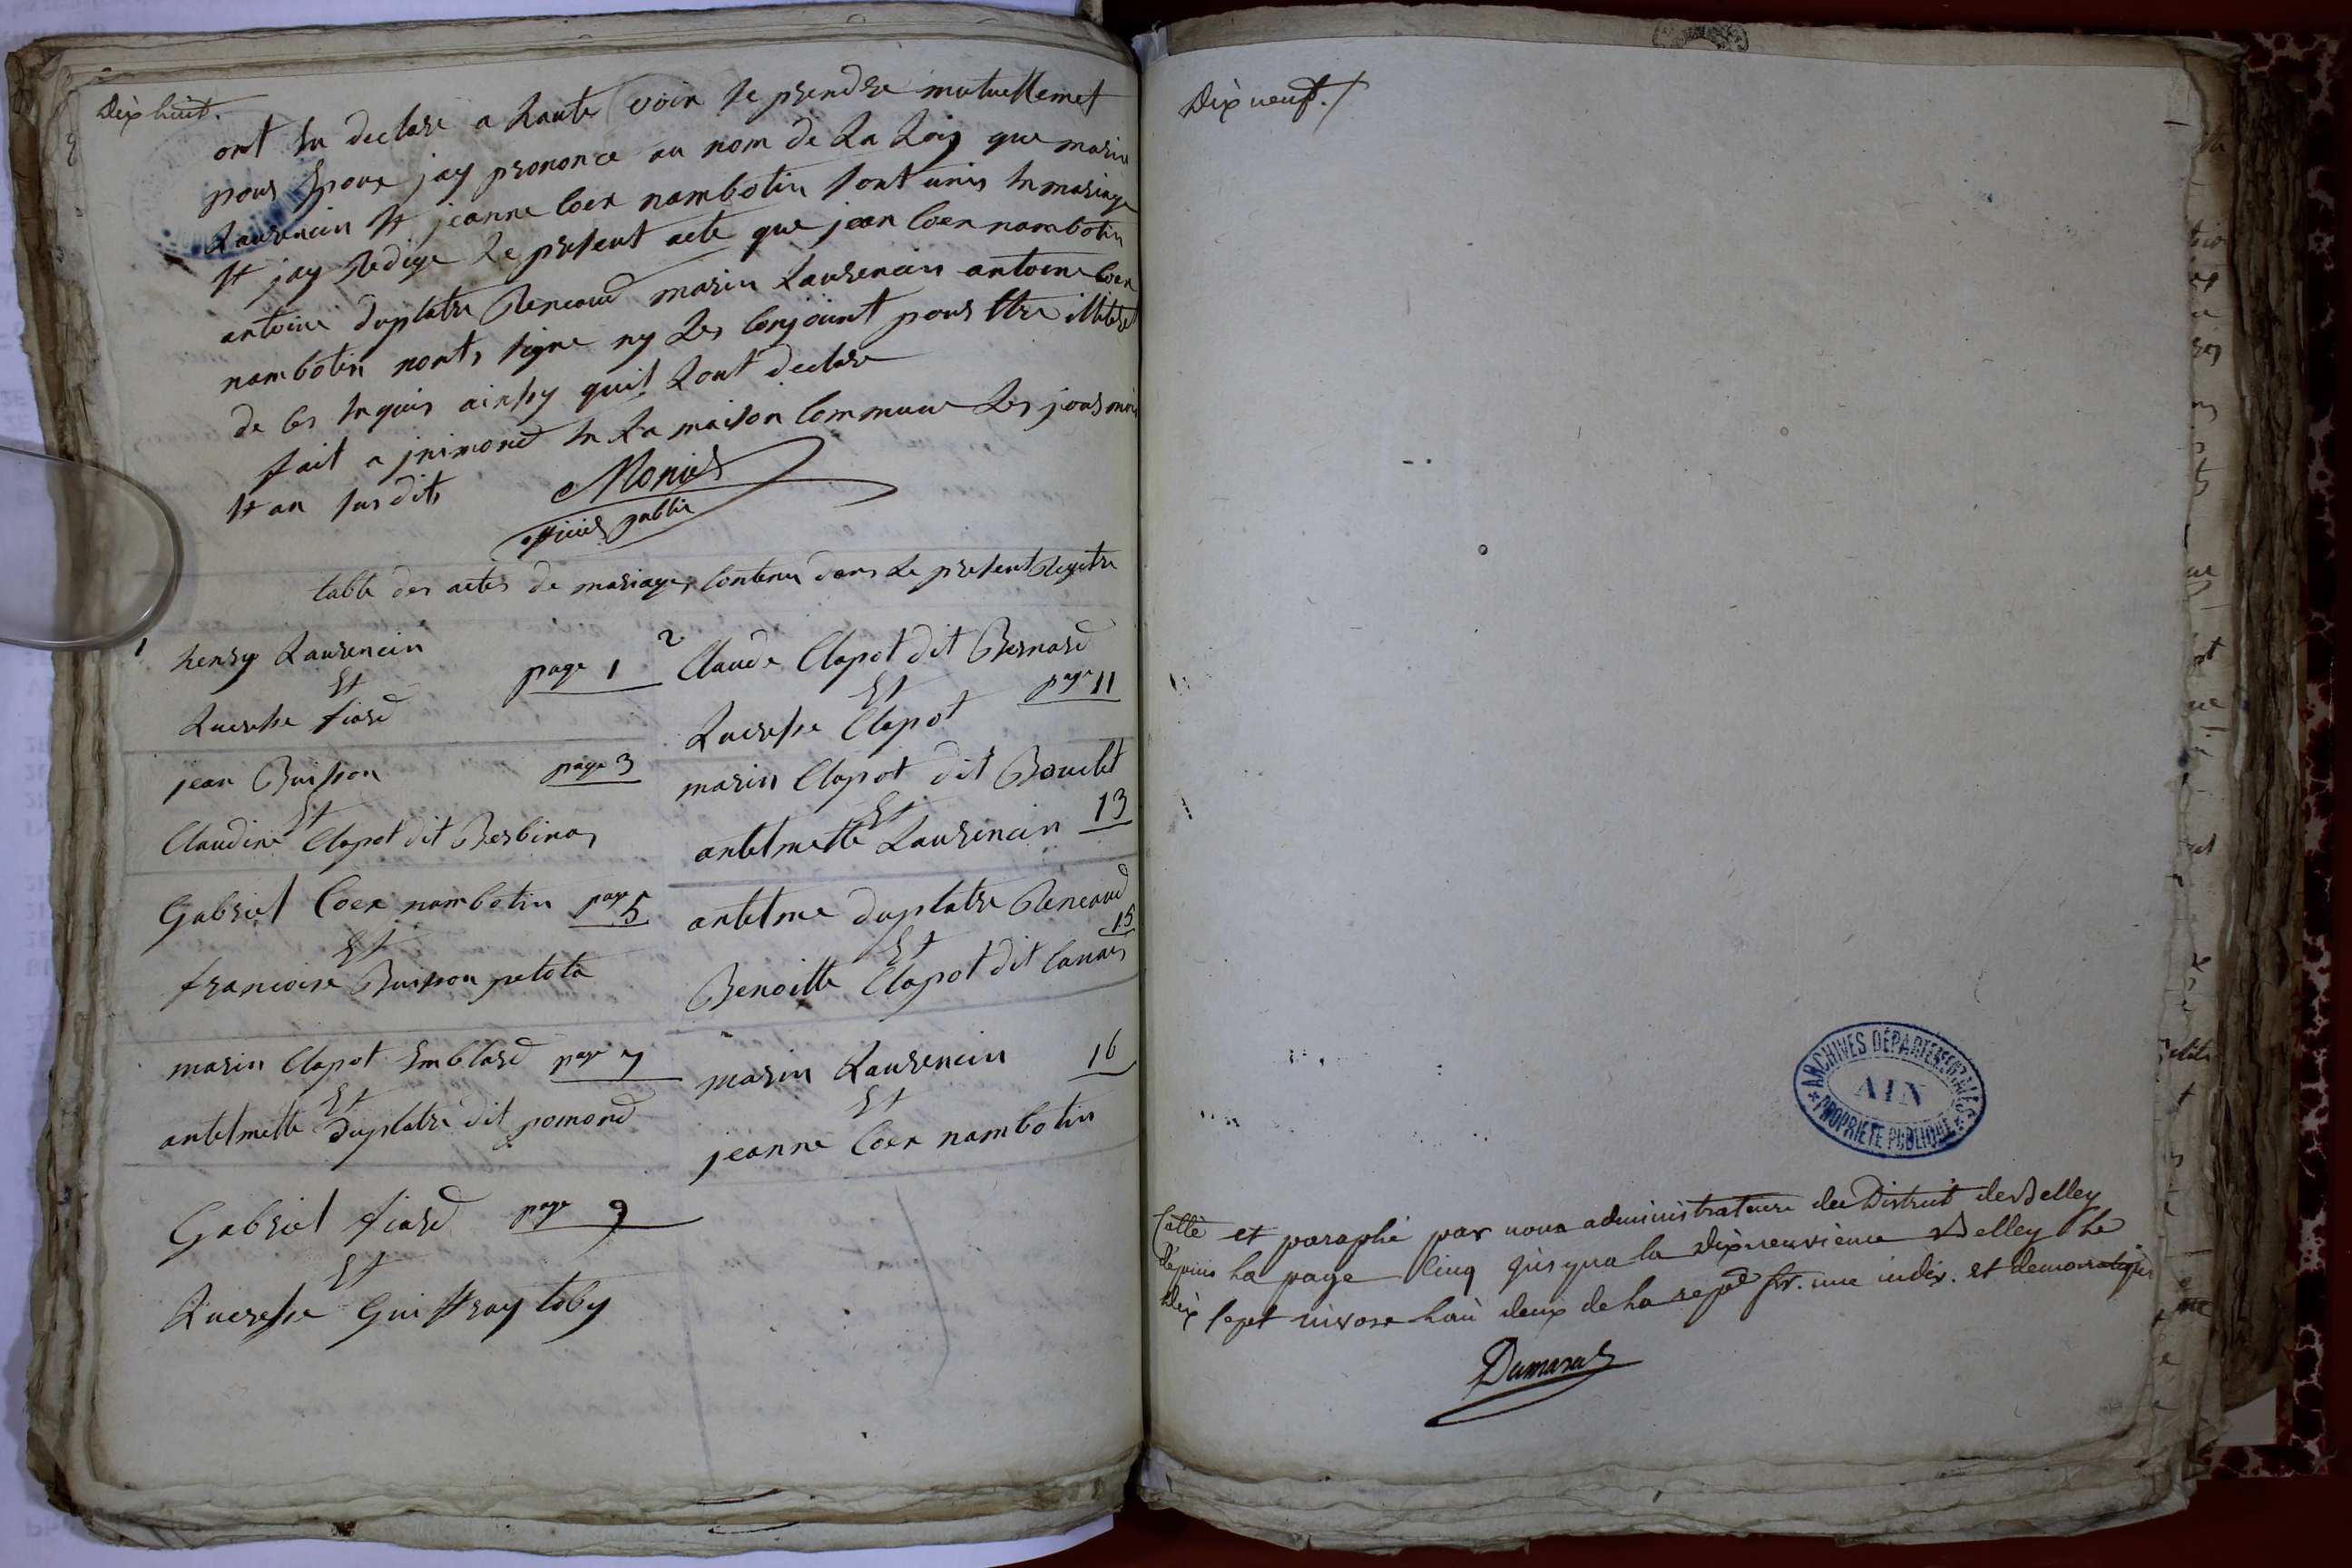 Dix huit.
ont En declare a haute voix Se prendre mutuellement
pour Epoux jay prononce au nom de La Loy que marin
Laurencin Et jeanne Coex nambotin sont unis En mariage
Et jay Redige Le present acte que jean Coex nambotin
antoine duplatre Reneaud marin Laurencin antoine Coex
nambotin nonts signe ny Les Conjoint pour Etre illitere
de Ces Enquis ainssy quil Lont declare
fait a jnimond En La maison Commune Les jour mois
Et an susdits
Monier
officier public
table des actes de mariages Contenu dans Le present Registre
1 henry Laurencin
Et page 1
Lucresse fiard
jean Buisson page 3
Et
Claudine Clapot dit Berbinas
Gabriel Coex nambotin page 5
Et
francoise Buisson petota
marin Clapot Emblard page 7
Et
antelmette duplatre dit pomond
Gabriel fiard page 9
Et
Lucresse Guiffray toby
2 Claude Clapot dit Bernard
Et page 11
Lucresse Clapot
marin Clapot dit Bouclet
Et 13
antelmette Laurencin
antelme duplatre Reneaud
Et 15
Benoitte Clapot dit Canais
marin Laurencin 16
Et
jeanne Coex nambotin
Dix neuf./
ARCHIVES DÉPARTEMENTALES
AIN
PROPRIÉTÉ PUBLIQUE
Cotté et paraphé par nous administrateur du District de Belley
dépuis La page Cinq jusqua la Dixneuvieme Belley Le
Dix sept nivose Lan deux de La repq fr. une indiv. et democratique
Dumarest